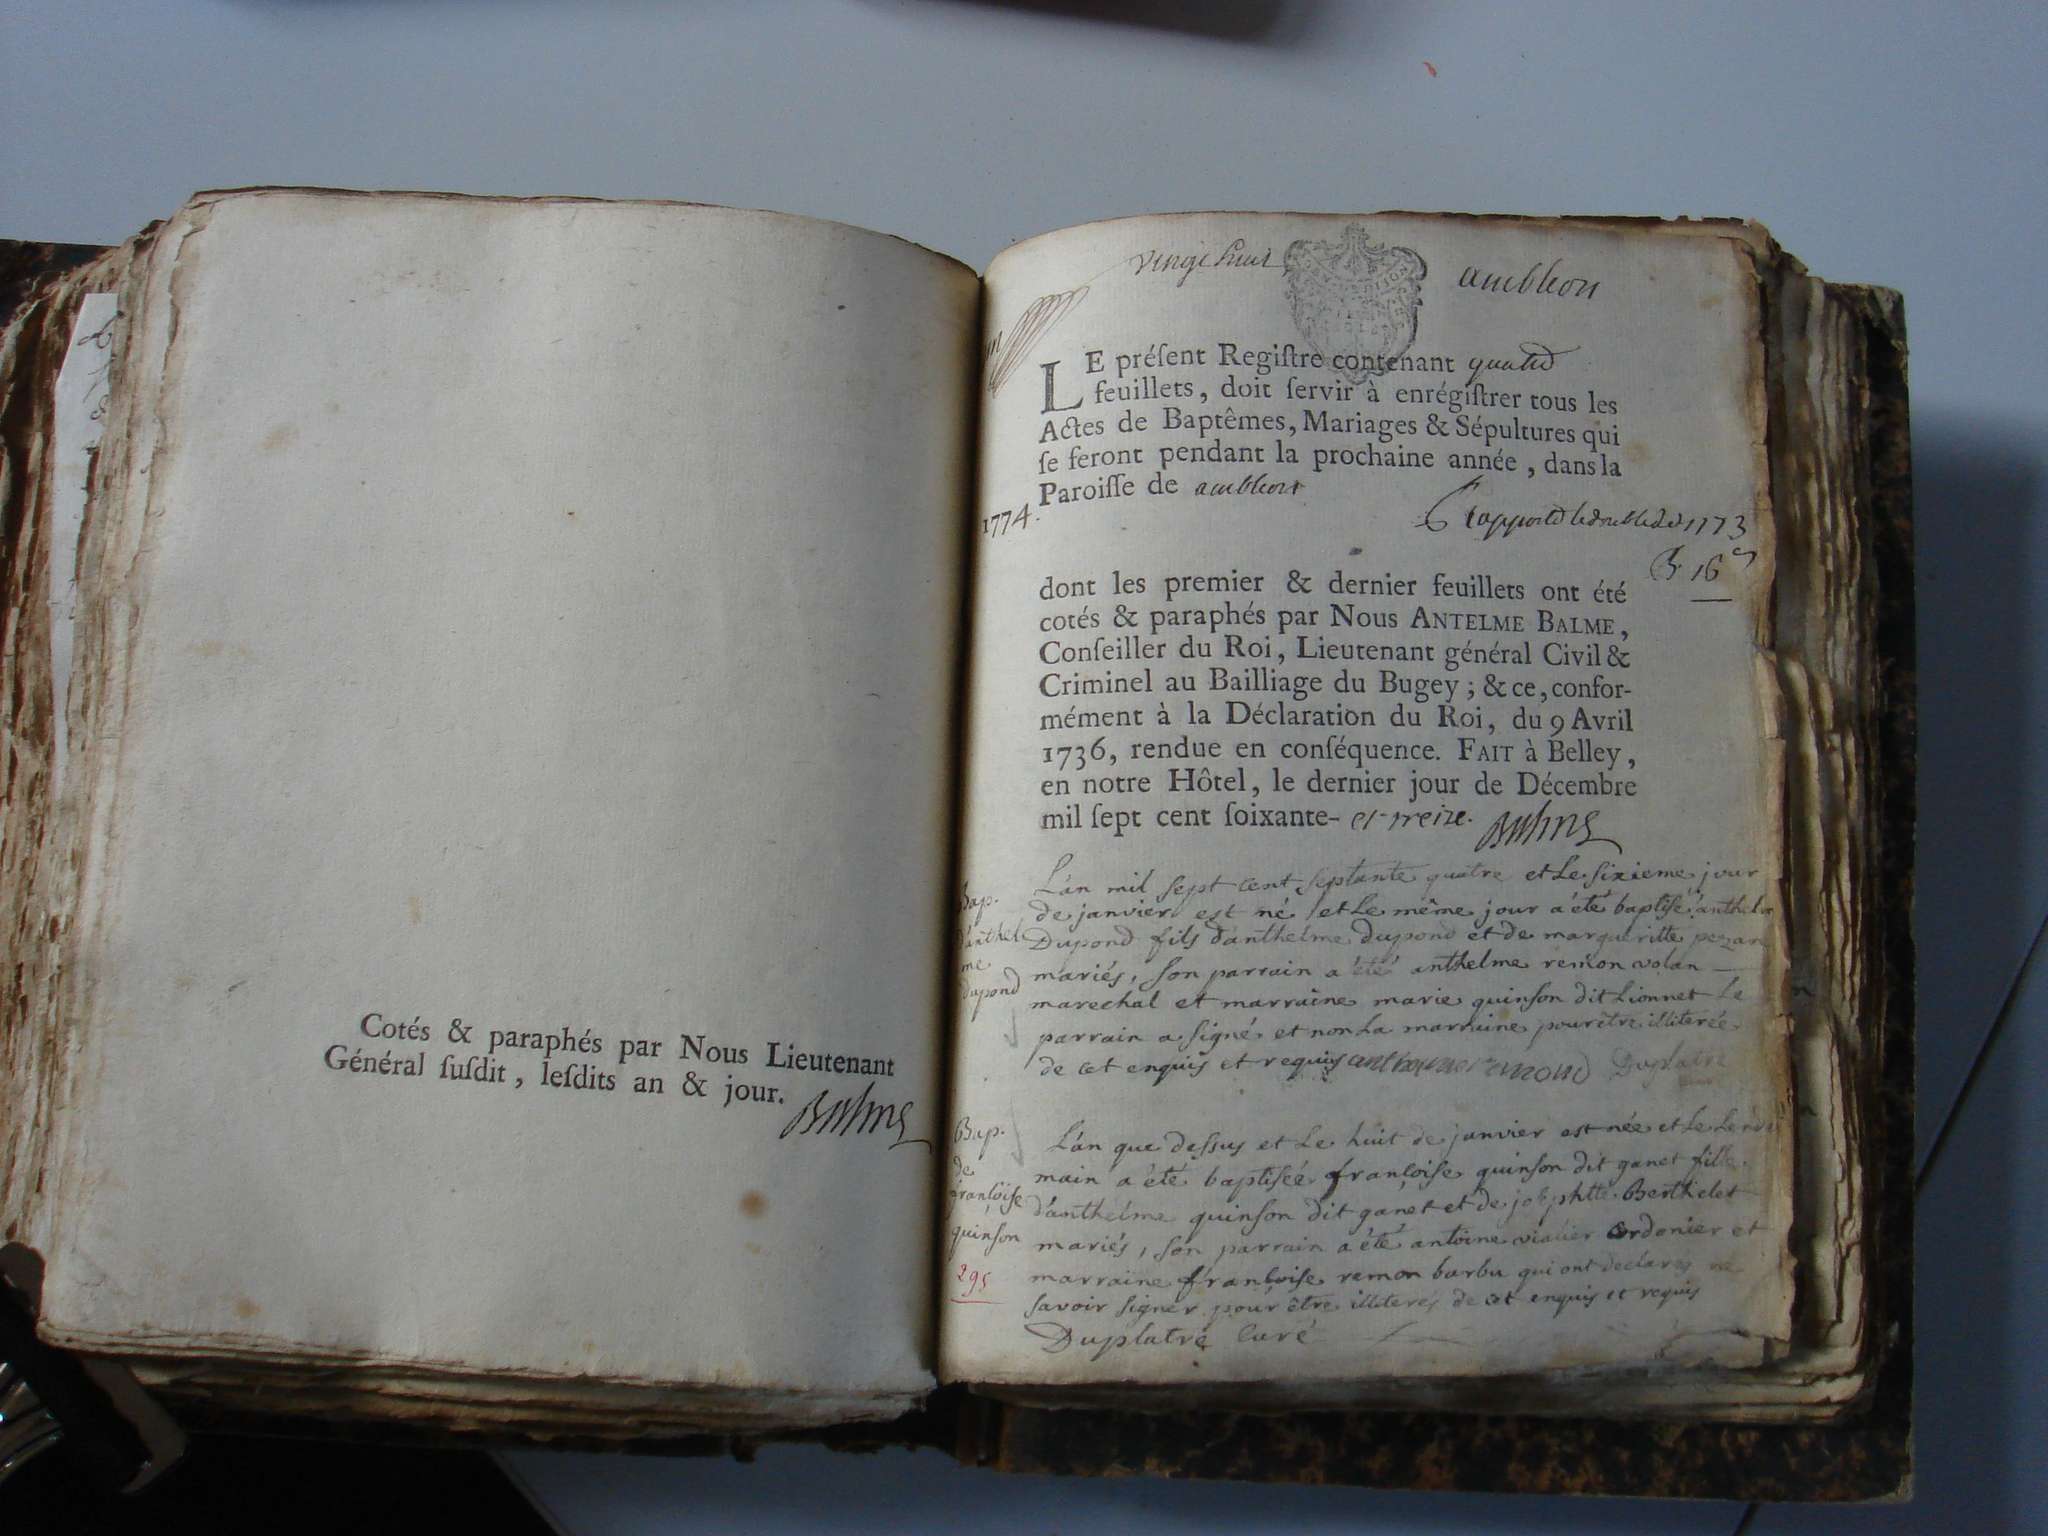 Cotés & paraphés par Nous Lieutenant
Général ſuſdit, leſdits an & jour.
Balme
ambleon
LE préſent Regiſtre contenant quatre
feuillets, doit ſervir à enrégiſtrer tous les
Actes de Baptêmes, Mariages & Sépultures qui
ſe feront pendant la prochaine année, dans la
Paroiſſe de ambleon
1774.
rapporté le double de 1773
dont les premier & dernier feuillets ont été
cotés & paraphés par Nous ANTELME BALME,
Conſeiller du Roi, Lieutenant général Civil &
Criminel au Bailliage du Bugey; & ce, confor-
mément à la Déclaration du Roi, du 9 Avril
1736, rendue en conſéquence. FAIT à Belley,
en notre Hôtel, le dernier jour de Décembre
mil ſept cent ſoixante- et treize. Balme
Bap.
d'anthel
me
Dupond
L'an mil sept cent septante quatre et Le sixieme jour
de janvier est né et Le même jour a été baptisé anthelm
Dupond fils d'anthelme dupond et de margueritte
mariés, son parrain a été anthelme remon volan
marechal et marraine marie quinson dit Lionnet Le
parrain a signé et non La marraine pour être illiterée
de cet enquis et requis Duplatre
Bap.
de
françoise
quinson
295
L'an que dessus et Le huit de janvier est née et Le Lende
main a été baptisée françoise quinson dit ganet fille
d'anthelme quinson dit ganet et de josephtte Berthelet
mariés, son parrain a été antoine viallier cordonier et
marraine françoise remon barbu qui ont declaré ne
savoir signer pour être illiterés de cet enquis et requis
Duplatre Curé